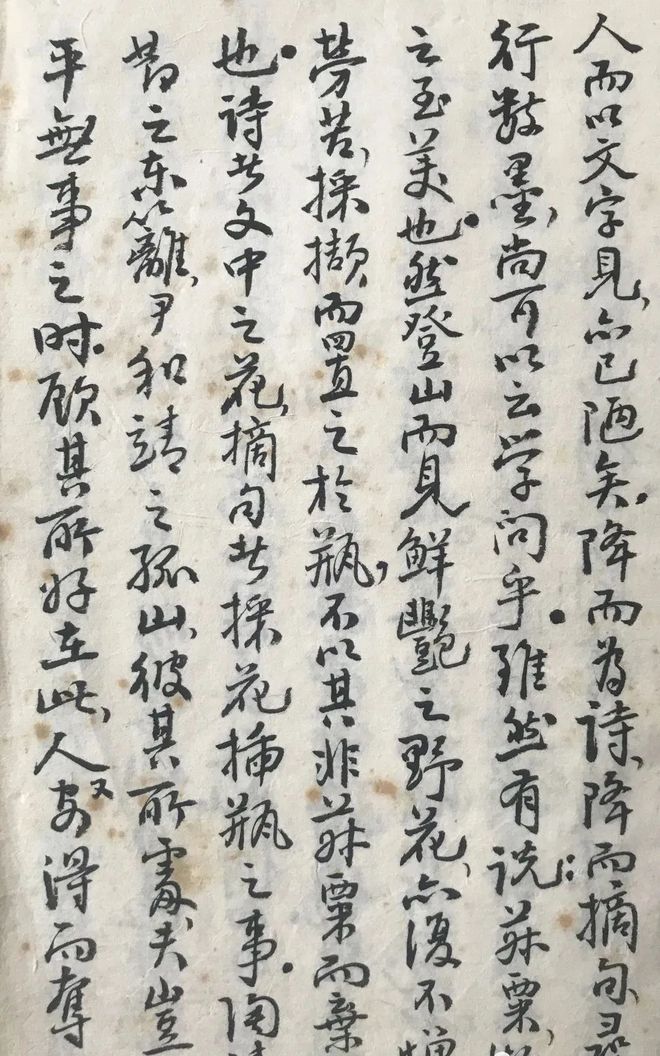 人而以文字見、亦已陋矣。降而為詩、降而摘句、尋
行数墨、尚可以云学问乎。雖然有说：菽粟、
之至美也。然登山而見鮮艷之野花、亦復不
劳苦、採擷而置之於瓶、不以其非菽粟而棄
也。诗者文中之花、摘句者採花插瓶之事。陶
之东篱、尹和靖之孤山、彼其所處夫豈
平無事之时。顧其所好在此、人又安得而奪